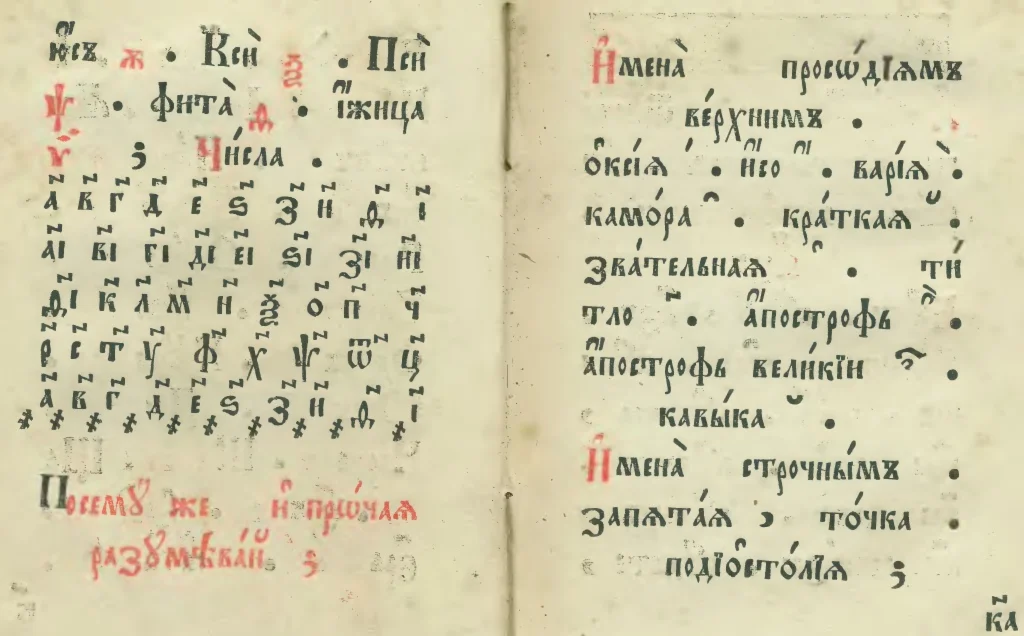 Ю҆́съ ѫ . Ксѝ ѯ . Псѝ
ѱ . фита̀ ѳ . і҆́жица
ѵ ; Чи́сла .
а҃ в҃ г҃ д҃ е҃ ѕ҃ з҃ и҃ ѳ҃ і҃
аі҃ ві҃ гі҃ ді҃ еі҃ ѕі҃ зі҃ иі҃
ѳі҃ к҃ л҃ м҃ н҃ ѯ҃ о҃ п҃ ч҃
р҃ с҃ т҃ у҃ ф҃ х҃ ѱ҃ ѿ҃ ц҃
҂а҃ ҂в҃ ҂г҃ ҂д҃ ҂е҃ ҂ѕ҃ ҂з҃ ҂и҃ ҂ѳ҃ ҂і҃
Посемꙋ̀ же и҆ прѡ́чаѧ
разꙋмѣва́й ;
И҆мена̀ просѡді́ѧмъ
ве́рхнимъ .
ѻ҆ксі́ѧ ́ . и҆́со ҆́ . варі́ѧ ̀ .
камо́ра ̑ . кра́ткаѧ ̆ .
зва́тельнаѧ ҆ . ти́
тло ҃ . а҆́построфь ҆̀ .
а҆́построфь вели́кїи .
кавы́ка .
И҆мена̀ строчны́мъ .
Запѧта́ѧ , то́чка .
подїѻ҆сто́лїѧ ;
к҃а